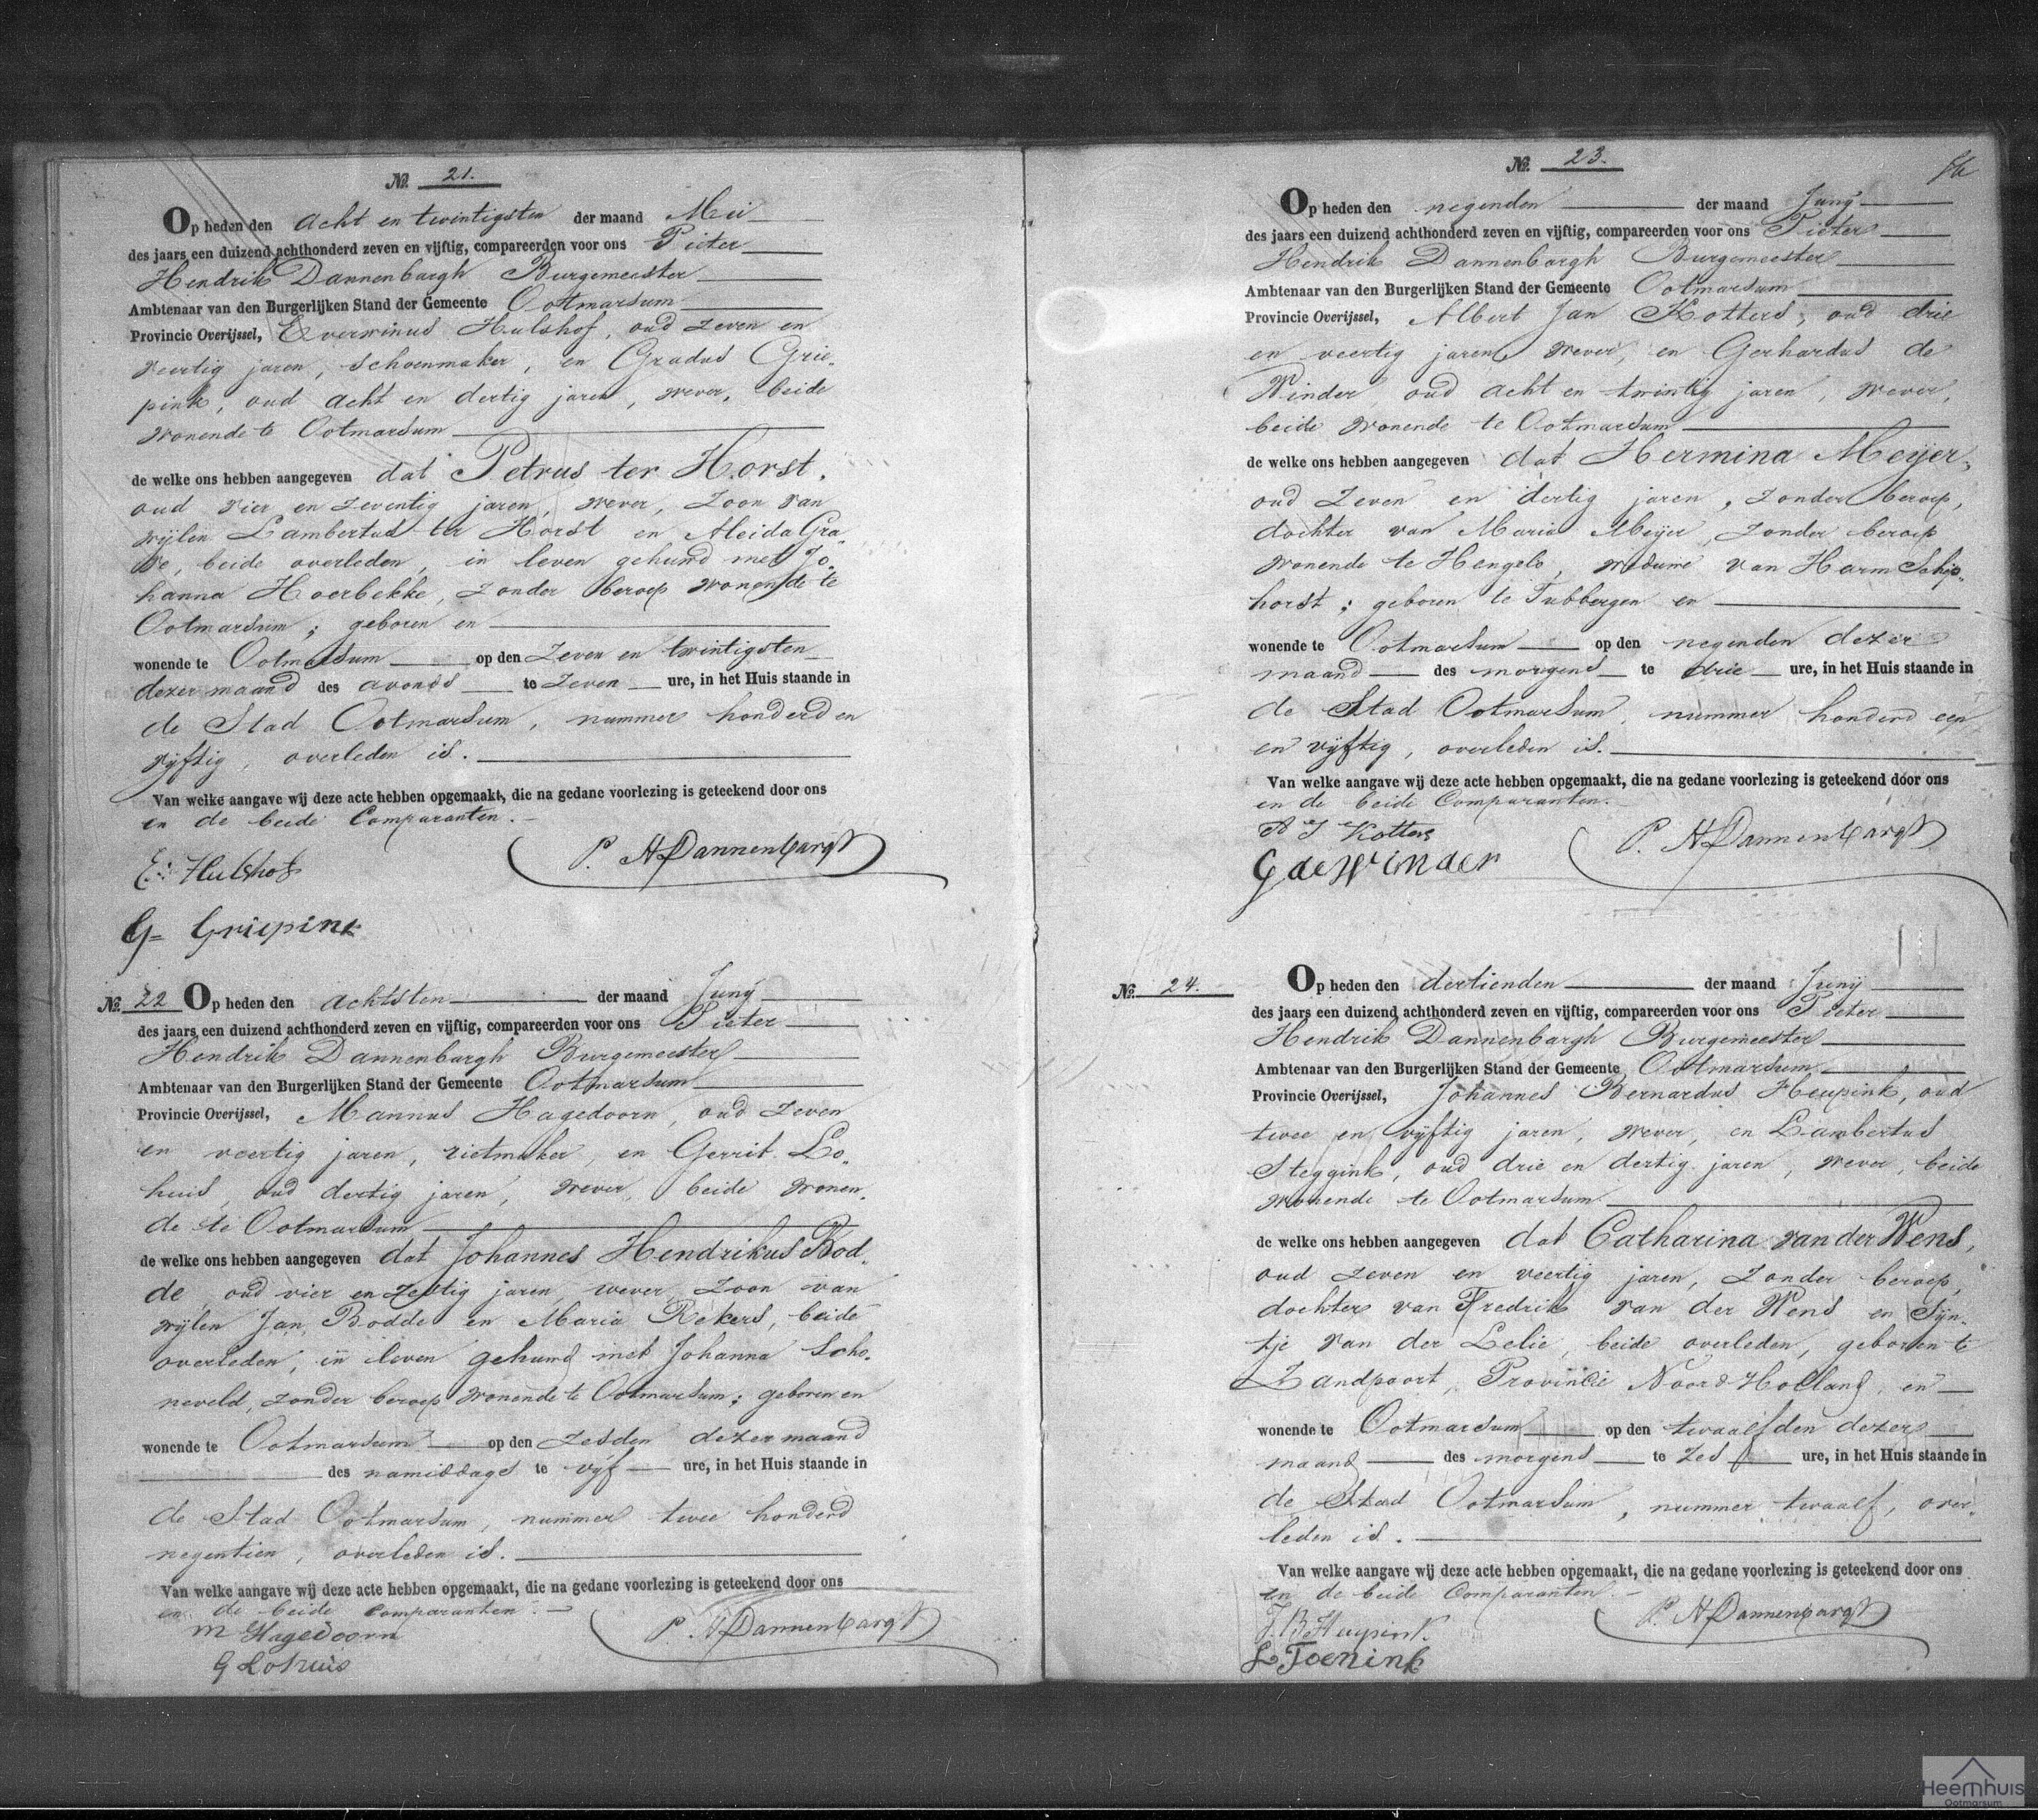 No. 21.
Op heden den acht en twintigsten der maand Mei
des jaars een duizend achthonderd zeven en vijftig, compareerden voor ons Pieter
Hendrik Dannenbargh Burgemeester
Ambtenaar van den Burgerlijken Stand der Gemeente Ootmarsum
Provincie Overijssel, Everwinus Hulshof, oud zeven en
veertig jaren, schoenmaker, en Gradus Grie-
pink, oud acht en dertig jaren, wever, beide
wonende te Ootmarsum
de welke ons hebben aangegeven dat Petrus ter Horst,
oud vier en zeventig jaren, wever, zoon van
wijlen Lambertus ter Horst en Aleida Gra-
we, beide overleden, in leven gehuwd met Jo-
hanna Hoerbekke, zonder beroep wonende te
Ootmarsum; geboren en
wonende te Ootmarsum op den zeven en twintigsten
dezer maand des avonds te zeven ure, in het Huis staande in
de Stad Ootmarsum, nummer honderd en
vijftig, overleden is.
Van welke aangave wij deze acte hebben opgemaakt, die na gedane voorlezing is geteekend door ons
en de beide Comparanten.
P. H Dannenbargh
E: Hulshof
G= Griepink
No. 22 Op heden den achtsten der maand Junij
des jaars een duizend achthonderd zeven en vijftig, compareerden voor ons Pieter
Hendrik Dannenbargh Burgemeester
Ambtenaar van den Burgerlijken Stand der Gemeente Ootmarsum
Provincie Overijssel, Mannus Hagedoorn, oud zeven
en veertig jaren, rietmaker, en Gerrit Lo-
huis, oud dertig jaren, wever, beide wonen-
de te Ootmarsum
de welke ons hebben aangegeven dat Johannes Hendrikus Bod-
de, oud vier en zestig jaren, wever, zoon van
wijlen Jan Bodde en Maria Rekers, beide
overleden, in leven gehuwd met Johanna Scho-
neveld, zonder beroep wonende te Ootmarsum; geboren en
wonende te Ootmarsum op den zesden dezer maand
des namiddags te vijf ure, in het Huis staande in
de Stad Ootmarsum, nummer twee honderd
negentien, overleden is.
Van welke aangave wij deze acte hebben opgemaakt, die na gedane voorlezing is geteekend door ons
en de beide Comparanten.
M Hagedoorn
P. H Dannenbargh
G Lohuis
No. 23.
Op heden den negenden der maand Junij
des jaars een duizend achthonderd zeven en vijftig, compareerden voor ons Pieter
Hendrik Dannenbargh Burgemeester
Ambtenaar van den Burgerlijken Stand der Gemeente Ootmarsum
Provincie Overijssel, Albert Jan Kotters, oud drie
en veertig jaren, wever, en Gerhardus de
Winder, oud acht en twintig jaren, wever,
beide wonende te Ootmarsum
de welke ons hebben aangegeven dat Hermina Meijer,
oud zeven en dertig jaren, zonder beroep,
dochter van Maria Meijer, zonder beroep
wonende te Hengelo, weduwe van Harm Schip-
horst; geboren te Tubbergen en
wonende te Ootmarsum op den negenden dezer
maand des morgens te drie ure, in het Huis staande in
de Stad Ootmarsum, nummer honderd een
en vijftig, overleden is.
Van welke aangave wij deze acte hebben opgemaakt, die na gedane voorlezing is geteekend door ons
en de beide Comparanten.
A J Kotters
P. H Dannenbargh
G de Winder
No. 24.
Op heden den dertienden der maand Junij
des jaars een duizend achthonderd zeven en vijftig, compareerden voor ons Pieter
Hendrik Dannenbargh Burgemeester
Ambtenaar van den Burgerlijken Stand der Gemeente Ootmarsum
Provincie Overijssel, Johannes Bernardus Heupink, oud
twee en vijftig jaren, wever, en Lambertus
Steggink, oud drie en dertig jaren, wever, beide
wonende te Ootmarsum
de welke ons hebben aangegeven dat Catharina van der Wens,
oud zeven en veertig jaren, zonder beroep,
dochter van Fredrik van der Wens en Tijn-
tje van der Lelie, beide overleden, geboren te
Zandpoort, Provincie Noord-Holland, en
wonende te Ootmarsum op den twaalfden dezer
maand des morgens te zes ure, in het Huis staande in
de Stad Ootmarsum, nummer twaalf, over-
leden is.
Van welke aangave wij deze acte hebben opgemaakt, die na gedane voorlezing is geteekend door ons
en de beide Comparanten.
J. B Heupink
P. H Dannenbargh
L Toenink
Heemhuis
Ootmarsum